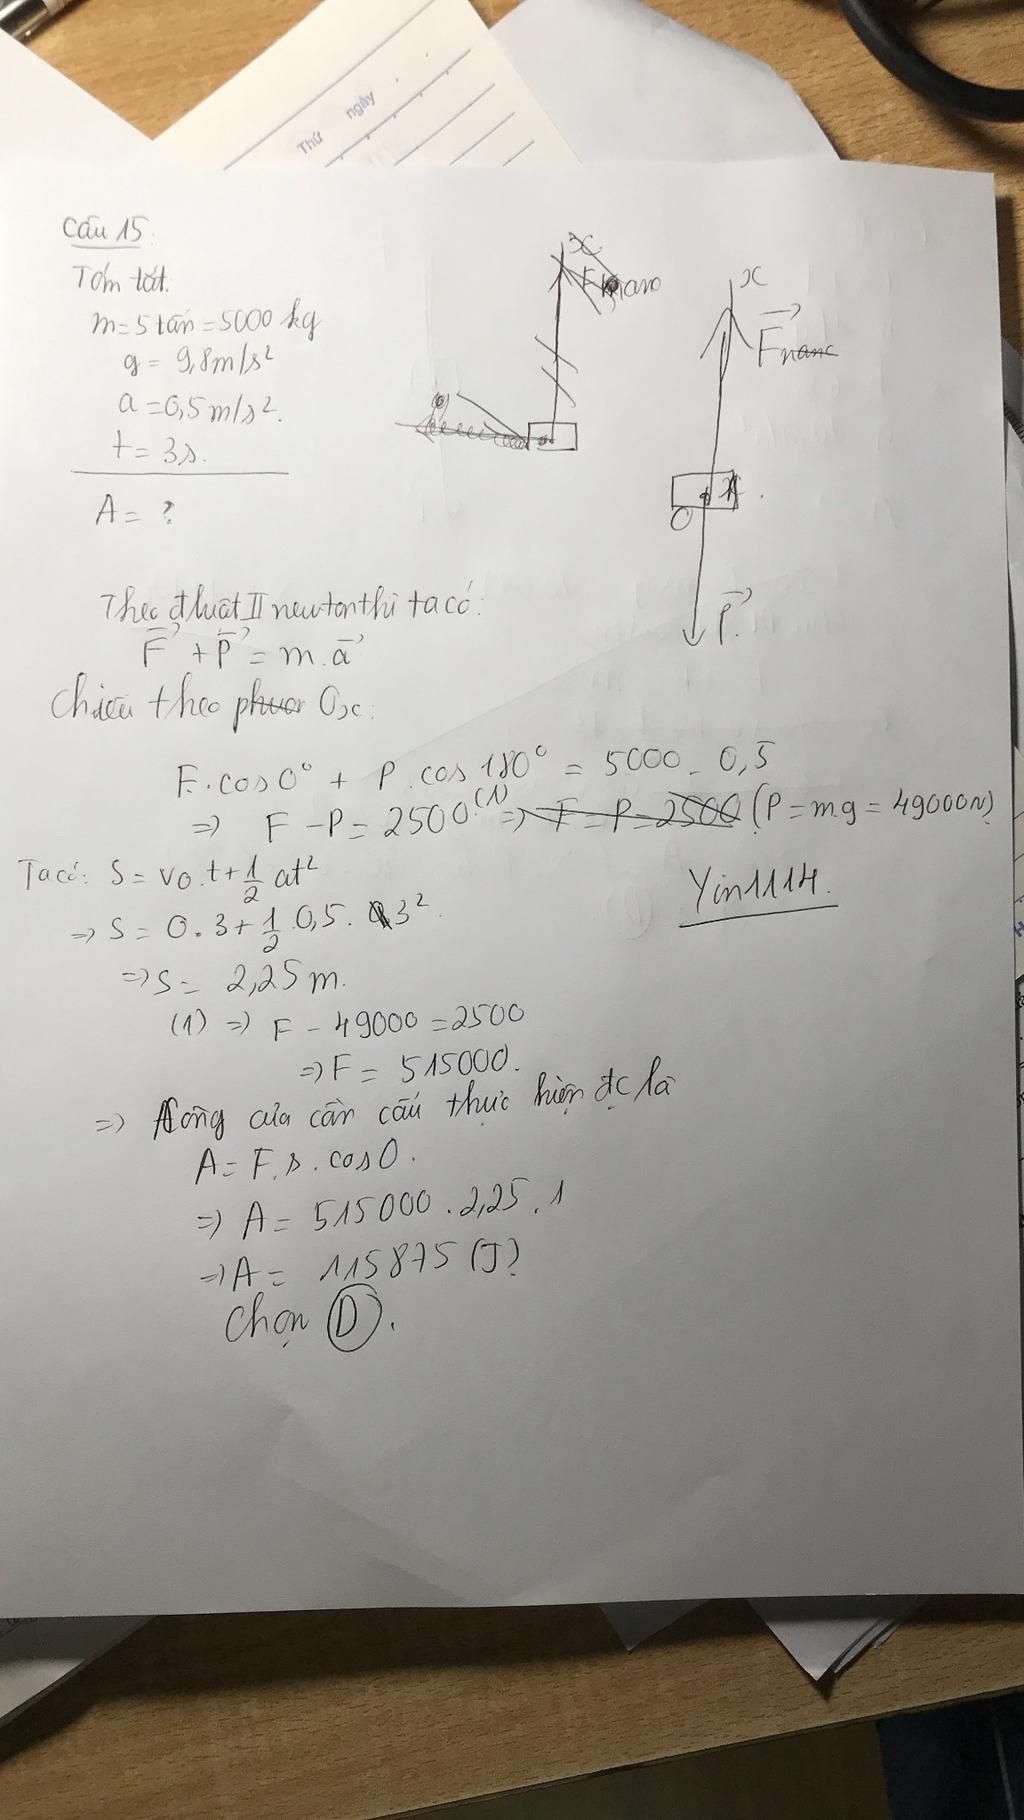 Thứ ngày
Câu 15:
Tóm tắt.
m = 5 tấn = 5000 kg
g = 9,8m/s²
a = 0,5 m/s².
t = 3s.
A = ?
x
x
F nanc
O
P.
Theo đluật II newton thì ta có:
F + P = m.a
Chiếu theo phươn Ox:
F.cos0° + P.cos180° = 5000.0,5
=> F - P = 2500 (1) => F - P = 2500 (P = m.g = 49000N)
Ta có: S = vo.t + 1/2 at²
=> S = 0.3 + 1/2.0,5.3²
=> S = 2,25 m.
Yin1114.
(1) => F - 49000 = 2500
=> F = 515000.
=> Công của cần cẩu thực hiện đc là
A = F.s.cos0.
=> A = 515000.2,25.1
=> A = 115875 (J)
Chọn D.